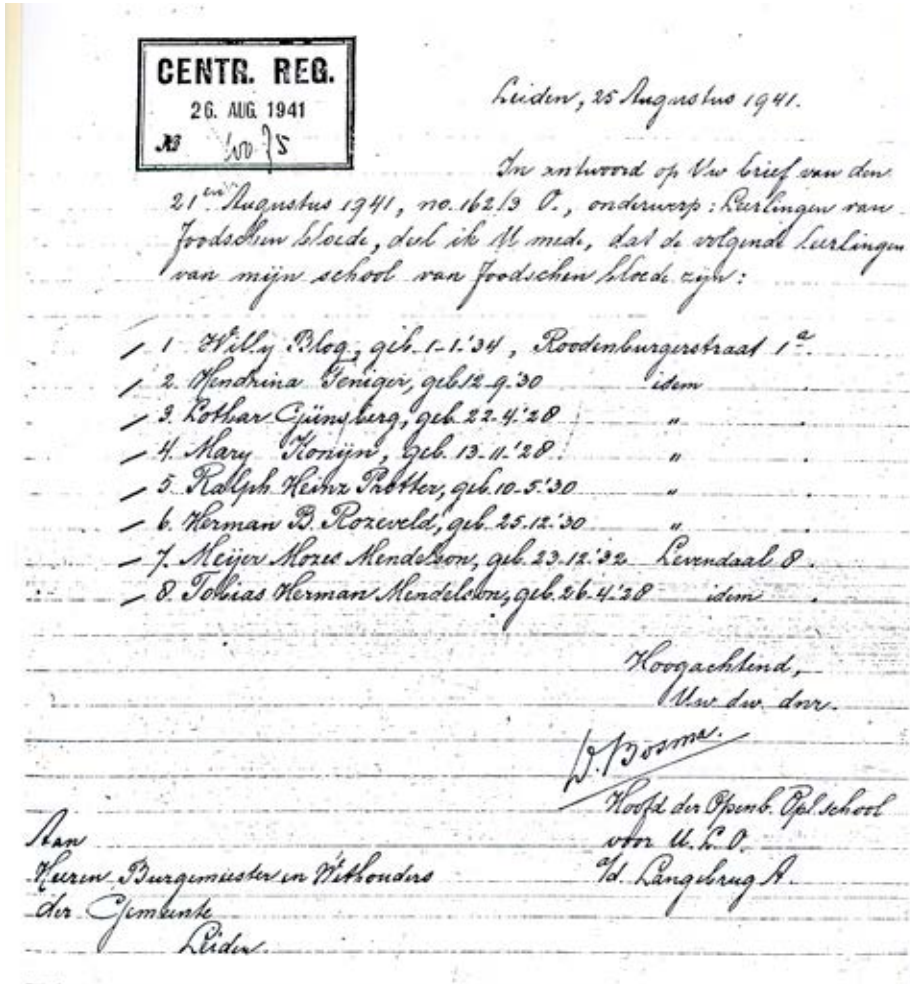 CENTR. REG.
26. AUG. 1941
No
Leiden, 25 Augustus 1941.
In antwoord op Uw brief van den
21en Augustus 1941, no. 162/3 O., onderwerp: Leerlingen van
Joodschen bloede, deel ik U mede, dat de volgende leerlingen
van mijn school van Joodschen bloede zijn:
1 Willy Blog, geb. 1-1-'34, Roodenburgerstraat 1a.
2. Hendrina Teniger, geb. 12-9-'30 idem .
3. Lothar Günsberg, geb. 22-4-'28 " .
4. Mary Konijn, geb. 13-11-'28. " .
5. Ralph Heinz Protter, geb. 10-5-'30 " .
6. Herman B. Rozeveld, geb. 25-12-'30 " .
7. Meijer Mozes Mendelson, geb. 23-12-'32 Levendaal 8.
8. Tobias Herman Mendelson, geb. 26-4-'28 idem .
Hoogachtend,
Uw dw. dnr.
D. Bosma.
Hoofd der Openb. Opl. school
voor U. L. O.
a/d. Langebrug A.
Aan
Heeren Burgemeester en Wethouders
der Gemeente
Leiden.